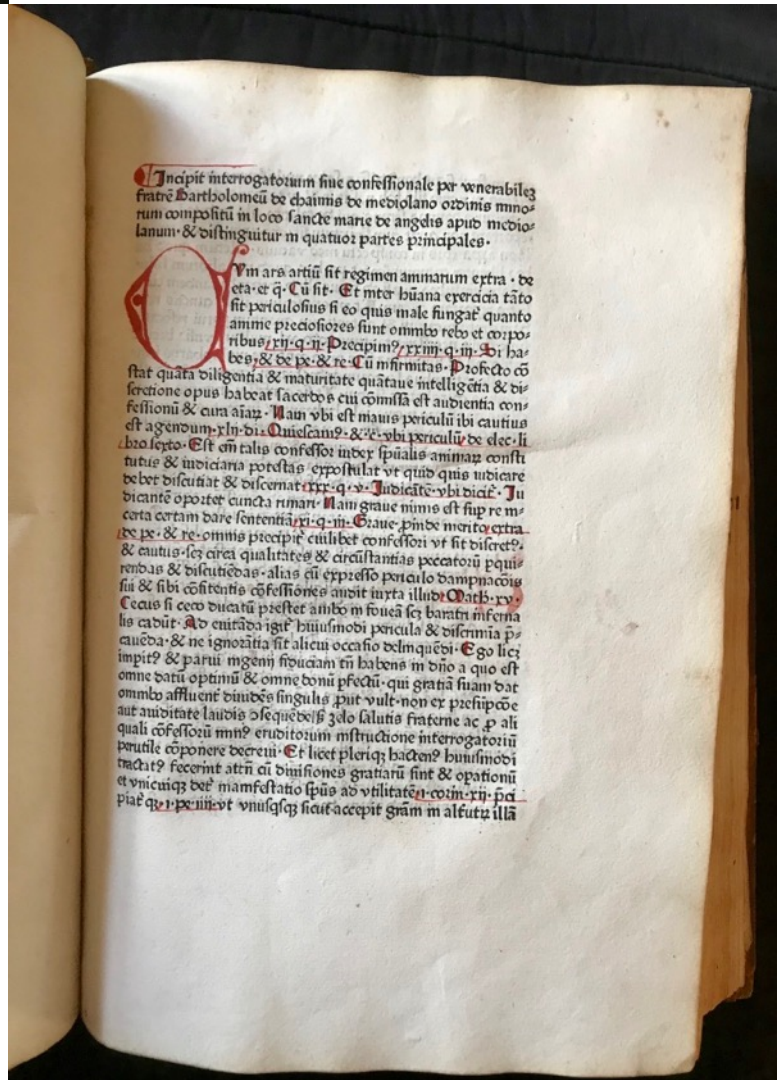 Incipit interrogatorium siue confessionale per venerabileꝫ
fratrē Bartholomeū de chaimis de mediolano ordinis mino⸗
rum compositū in loco sancte marie de angelis apud medio⸗
lanum· & distinguitur in quatuor partes principales·
CVm ars artiū sit regimen animarum extra · de
eta· et q̄· Cū sit· Et inter hūana exercicia tāto
sit periculosius si eo quis male fungat᷑ quanto
anime preciosiores sunt omnibo rebo et corpo⸗
ribus, xij· q· ij· Precipim⁹, xxiiij· q· iij· Si ha⸗
bes, & de pe· & re· Cū infirmitas· Profecto cō
stat quāta diligentia & maturitate quātaue intelligētia & di⸗
scretione opus habeat sacerdos cui cōmissa est audientia con⸗
fessionū & cura aīaꝝ· Nam vbi est maius periculū ibi cautius
est agendum· xlij· di· Quiescam⁹· & · c̄· vbi periculū, de elec· li
bro sexto· Est em̄ talis confessor iudex spūalis animaꝝ consti
tutus & iudiciaria potestas expostulat vt quid quis iudicare
debet discutiat & discernat, xxx· q· v· Judicātē· vbi dicit᷑· Ju
dicantē oportet cuncta rimari· Nam graue nimis est sup re in⸗
certa certam dare sententiā, xi· q· iij· Graue, ꝓinde merito, extra
de pe· & re· omnis precipit᷑ cuilibet confessori vt sit discret⁹·
& cautus· scꝫ circa qualitates & circūstantias peccatorū ꝑqui⸗
rendas & discutiēdas· alias cū expresso periculo dampnacōis
sui & sibi cōfitentis cōfessiones audit iuxta illud, Math· xv·
Cecus si ceco ducatū prestet ambo in foueā scꝫ baratri inferna
lis cadūt· Ad euitāda igit᷑ huiusmodi pericula & discrimīa p̄⸗
cauēda· & ne ignorātia sit alicui occasio delinquēdi· Ego licꝫ
imperit⁹ & parui ingenij fiduciam tn̄ habens in dn̄o a quo est
omne datū optimū & omne donū ꝑfectū· qui gratiā suam dat
omnibo affluent᷑ diuidēs singulis ꝓut vult· non ex presūpcōe
aut auiditate laudis ↄsequēde, sꝫ zelo salutis fraterne ac ꝓ ali
quali cōfessoꝝ min⁹ eruditorum instructione interrogatoriū
perutile cōponere decreui· Et licet pleriqꝫ hacten⁹ huiusmodi
tractat⁹ fecerint attn̄ cū diuisiones gratiarū sint & opationū
et vnicuiqꝫ det᷑ manifestatio spūs ad vtilitatē, i· corin· xij· p̄ci
piat᷑ qꝫ, i· pe· iiij· vt vnusqsqꝫ sicut accepit grām in alt᷑utꝝ illā